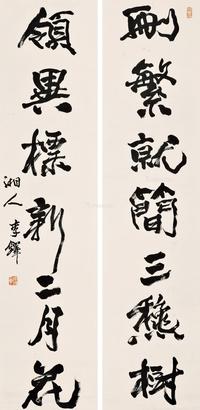 刪繁就簡三龝樹
領異標新二月花
湘人 李鐸